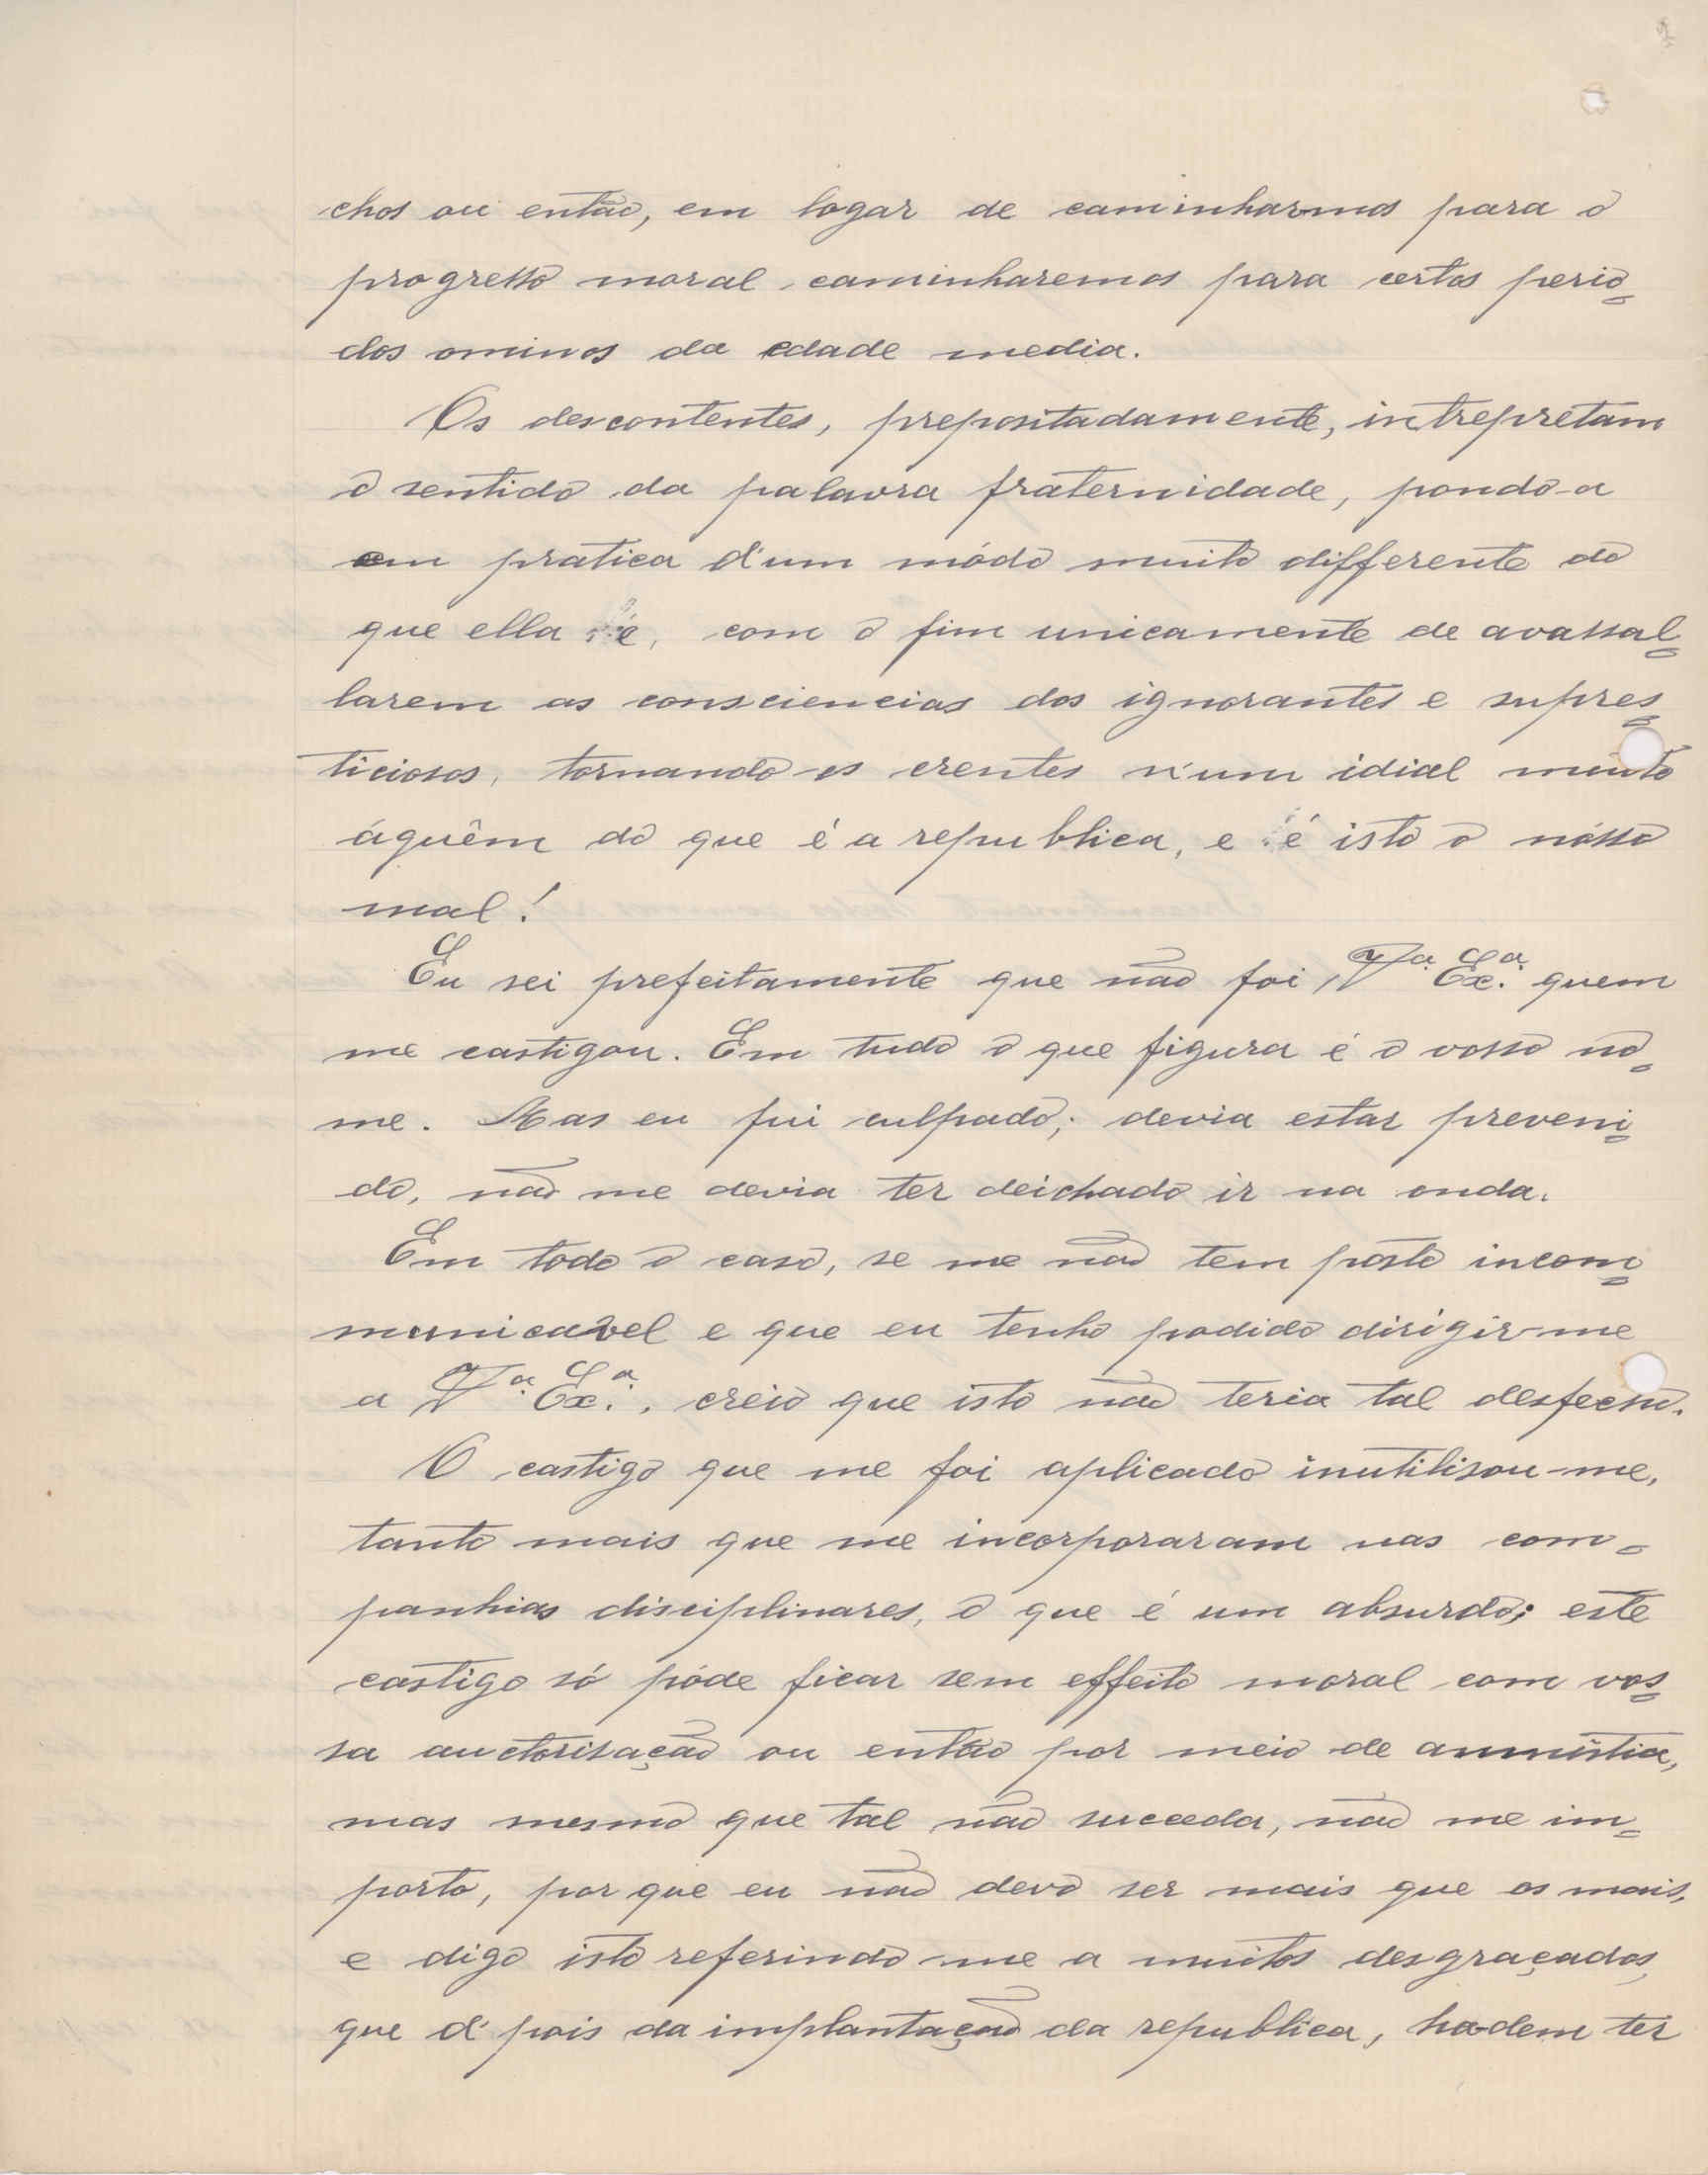 chos ou então, em logar de caminharmos para o
progresso moral caminharemos para certos perio=
dos ominos da edade media.
Os descontentes, prepositadamente, intrepretam
o sentido da palavra fraternidade, pondo-a
em pratica d'um módo muito differente do
que ella é, com o fim unicamente de avassal=
larem as consciencias dos ignorantes e supres=
ticiosos, tornando-os crentes n'um idial muito
áquêm do que é a republica, e é isto o nósso
mal!
Eu sei prefeitamente que não foi, Vª. Exª. quem
me castigou. Em tudo o que figura é o vosso no=
me. Mas eu fui culpado; devia estar preveni=
do, não me devia ter deichado ir na onda.
Em todo o caso, se me não tem posto incom=
municavel e que eu tenho podido dirigir-me
a Vª. Exª., creio que isto não teria tal desfecho.
O castigo que me foi aplicado inutilisou-me,
tanto mais que me incorporaram nas com=
panhias disciplinares, o que é um absurdo; este
castigo só póde ficar sem effeito moral com vos=
sa auctorisação ou então por meio de amnistia,
mas mesmo que tal não succeda, não me im=
porto, por que eu não devo ser mais que os mais,
e digo isto referindo-me a muitos desgraçados,
que d'pois da implantação da republica, ha-dem ter